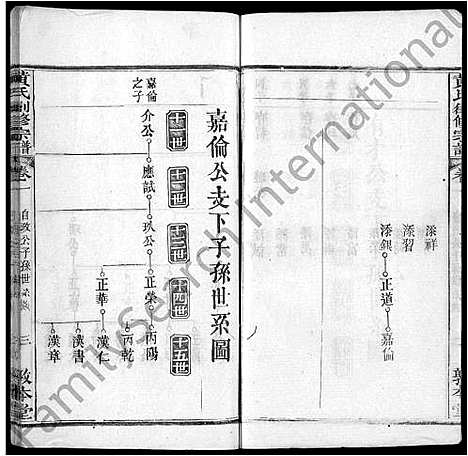 添祥
添習
添銀 正道 嘉倫
敦本堂
嘉倫公支下子孫世系圖
十一世 十二世 十三世 十四世 十五世
嘉倫之子
介公 應試 玖公 正榮 丙陽
丙乾
正華 漢仁
漢書
漢章
黃氏創修宗譜 卷一
公子孫世系
三
敦本堂
FamilySearch International